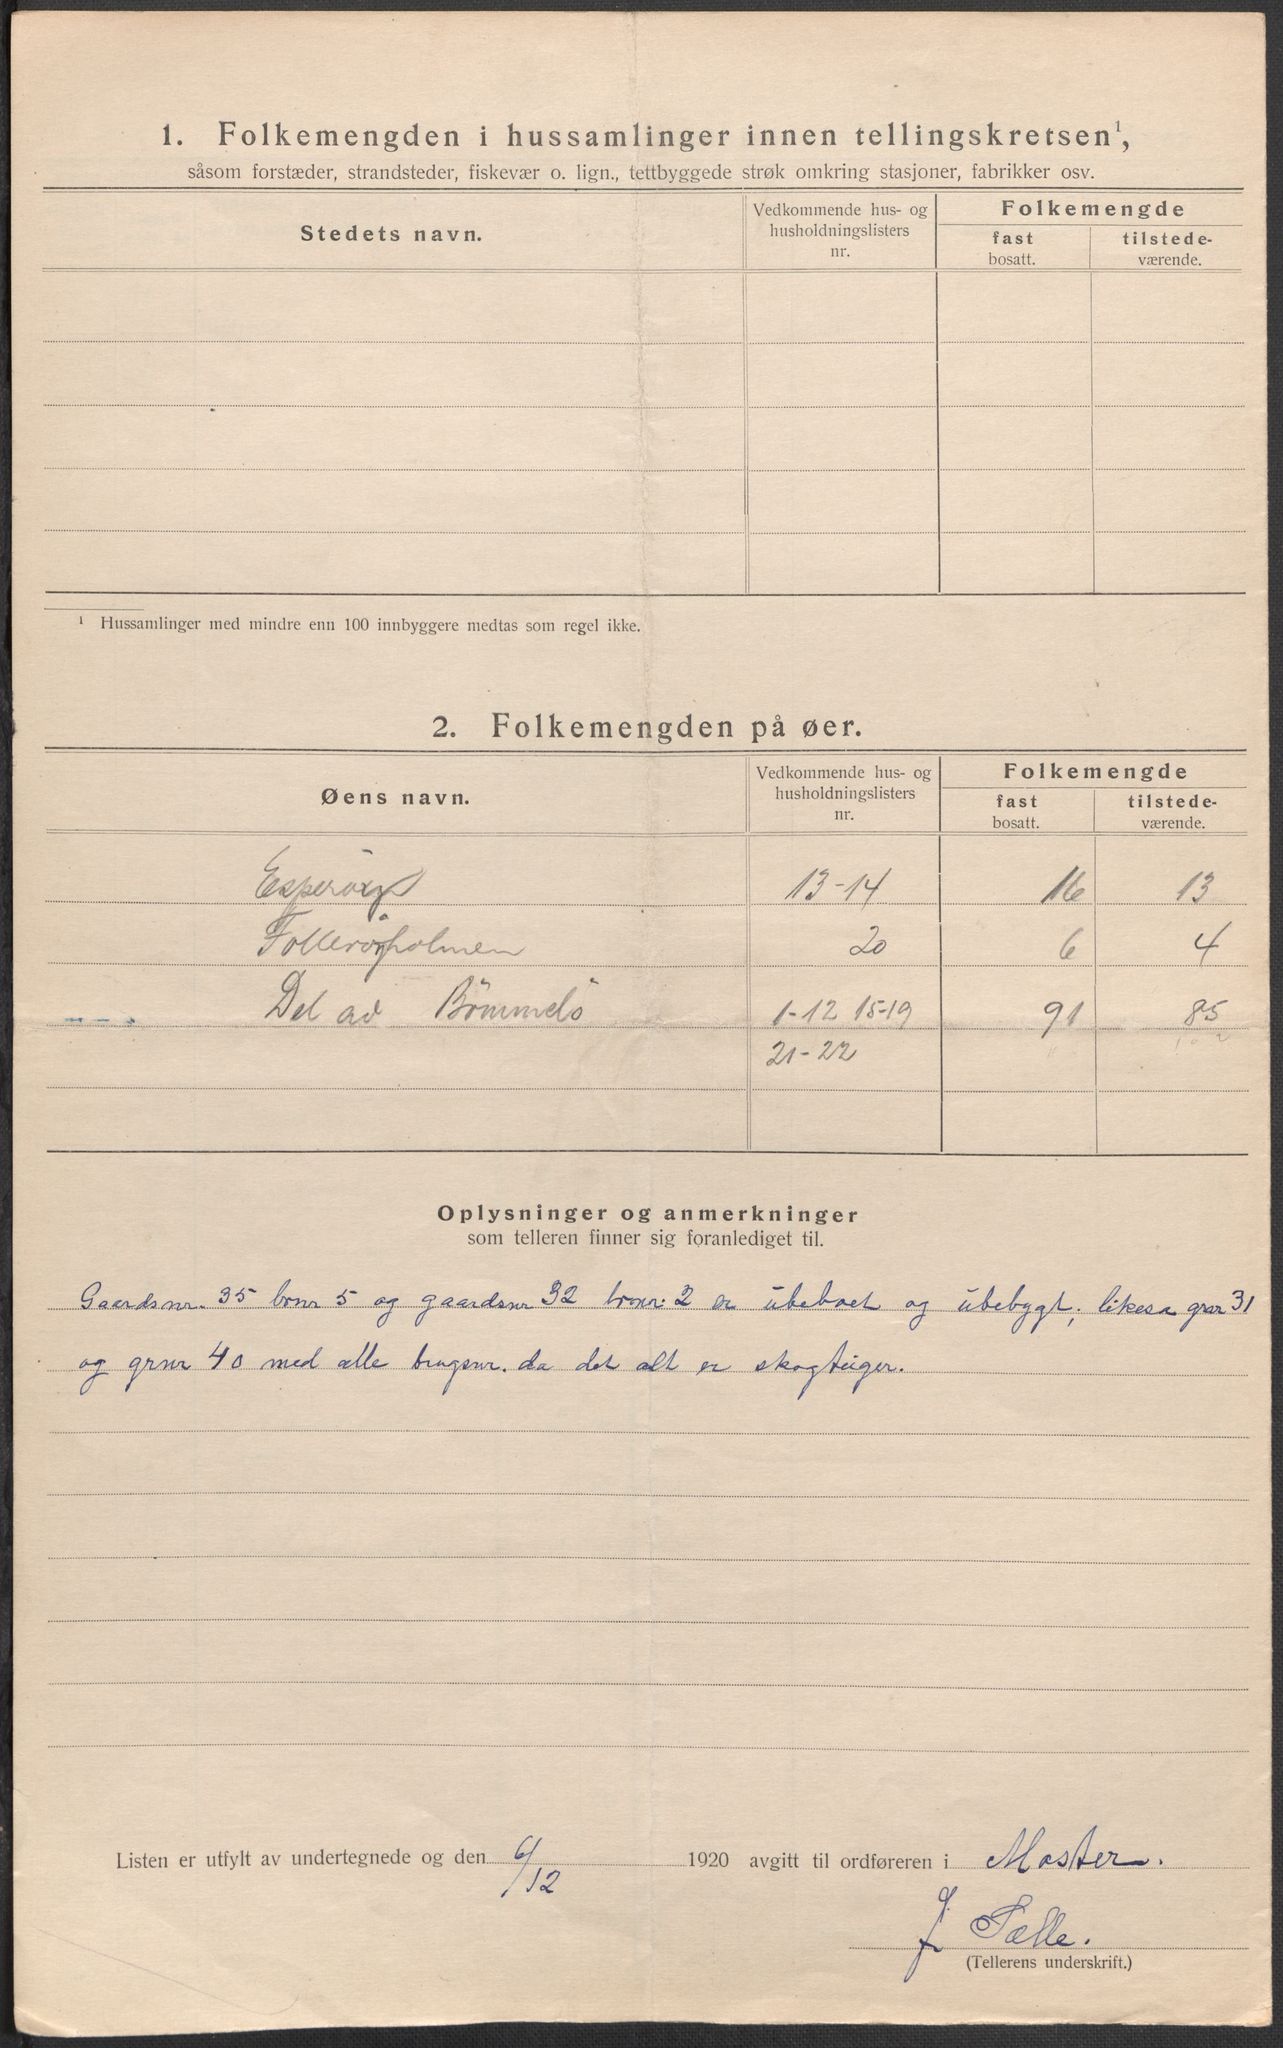 1. Folkemengden i hussamlinger innen tellingskretsen¹,
såsom forstæder, strandsteder, fiskevær o. lign., tettbyggede strøk omkring stasjoner, fabrikker osv.
Stedets navn.
Vedkommende hus- og husholdningslisters nr.
Folkemengde
fast bosatt.
tilstede-værende.
¹ Hussamlinger med mindre enn 100 innbyggere medtas som regel ikke.
2. Folkemengden på øer.
Øens navn.
Vedkommende hus- og husholdningslisters nr.
Folkemengde
fast bosatt.
tilstede-værende.
13-14 16 13
20 6 4
Del av Bömmelö 1-12 15-19 91 85
21-22
Oplysninger og anmerkninger
som telleren finner sig foranlediget til.
Gaardsnr. 35 brnr 5 og gaardsnr 32 brnr. 2 er ubeboet og ubebygt, likesa grnr 31
og grnr 40 med alle brugsnr. da det alt er skogteiger.
Listen er utfylt av undertegnede og den 6/12 1920 avgitt til ordføreren i Moster.
J. Sælle.
(Tellerens underskrift.)